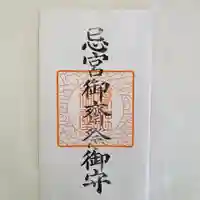 忌宮御齋祭御守